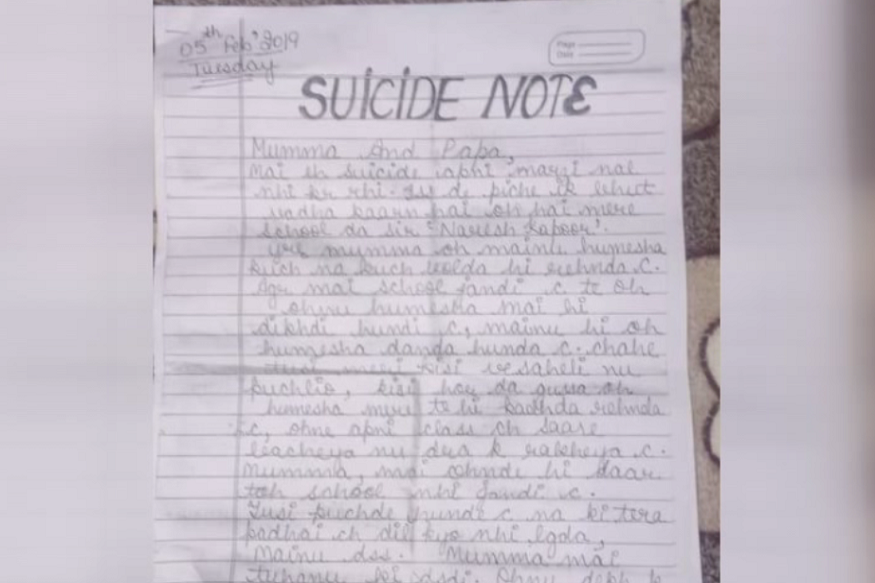 05th Feb' 2019
Tuesday
Page
Date
SUICIDE NOTE
Mumma And Papa,
Mai eh suicide apni marzi nal
nhi kr rhi. Is de piche ik bhut
vadha kaarn hai oh hai mere
school da sir 'Naresh Kapoor'.
mumma oh mainu humesha
kuch na kuch bolda hi rehnda c.
Agr mai school jandi c te oh
ohnu humesha mai hi
dikhdi hundi c, mainu hi oh
humesha danda hunda c. chahe
tusi meri kisi v saheli nu
puchlio, kisi hor da gussa oh
humesha mere te hi kaddhda rehnda
c, ohne apni class ch saare
bacheya nu dra k rakheya c.
Mumma, mai ohnde hi daar
toh school nhi jandi c.
Tusi puchde hunde c na ki tera
padhai ch dil kyo nhi lgda,
Mainu dss. Mumma mai
tuhanu ki dsdi. Ohnu dekh k